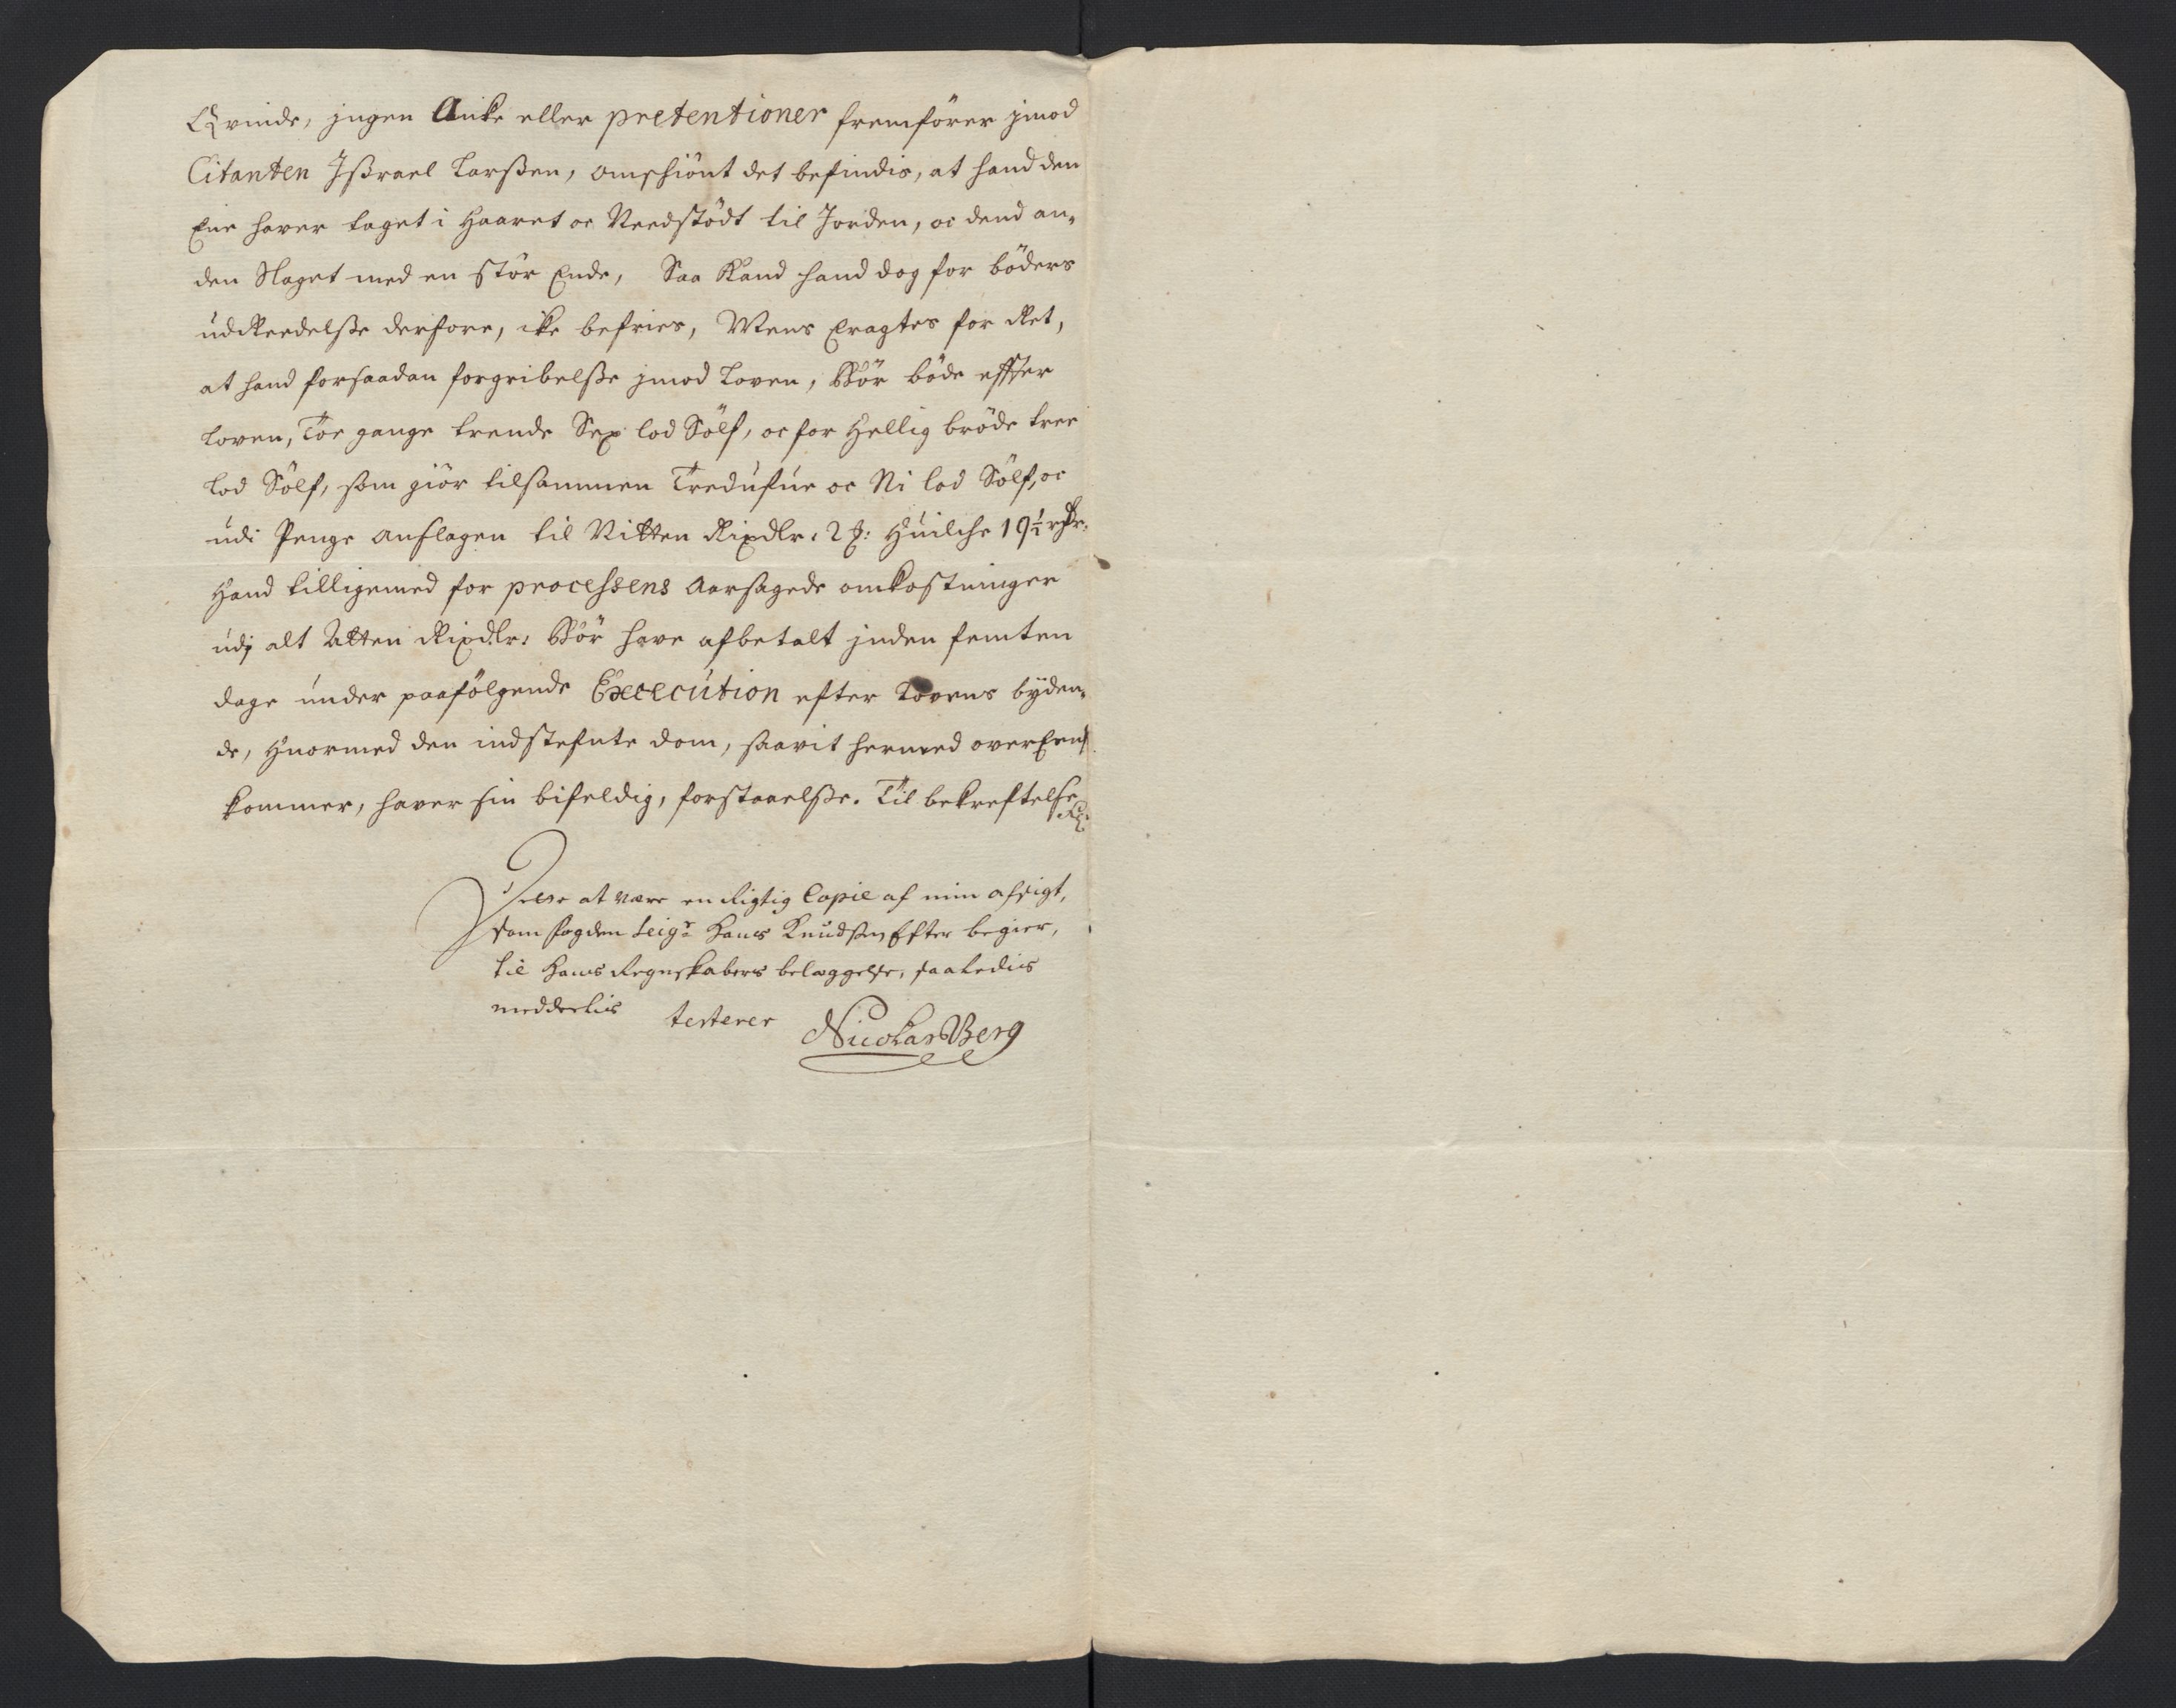 Qvinde, jngen Anke eller pretentioner fremfører jmod
Citanten Jsßrael Larßen, omschiønt det befindis, at hand den
Eene haver taget i Haaret oc Needstødt til Jorden, oc dend an-
den Slaget med en stør Ende, Saa Kand hand dog for bøders
udReedelße derfore, icke befries, Mens Eragtes for Ret,
at hand forsaadan forgribelße jmod Loven, Bør bøde effter
Loven, Toe gange trende Sex lod Sølf, oc for Hellig brøde tree
Lod Sølf, som giør tilsammen Tredufue oc Ni lod Sølf, oc
udi Penge anslagen til Nitten Rixdlr. 2 : Huilche 19½ rdr.
Hand tilligemed for processens aarsagede omkostninger
udj alt Atten Rixdlr: Bør have afbetalt jnden femten
dage under paafølgende Execution efter Lovens byden-
de, Huormed den indstefnte dom, saavit hermed overEens
kommer, haver sin bifeldig, forstaaelße. Til bekreftelse
Dette at være en Rigtig Copie af min afsigt,
som fogden Seigr Hans Knudsen Efter begier,
til Hans Regnskabers belæggelse, saaledis
meddeelis testerer NicolasBerg